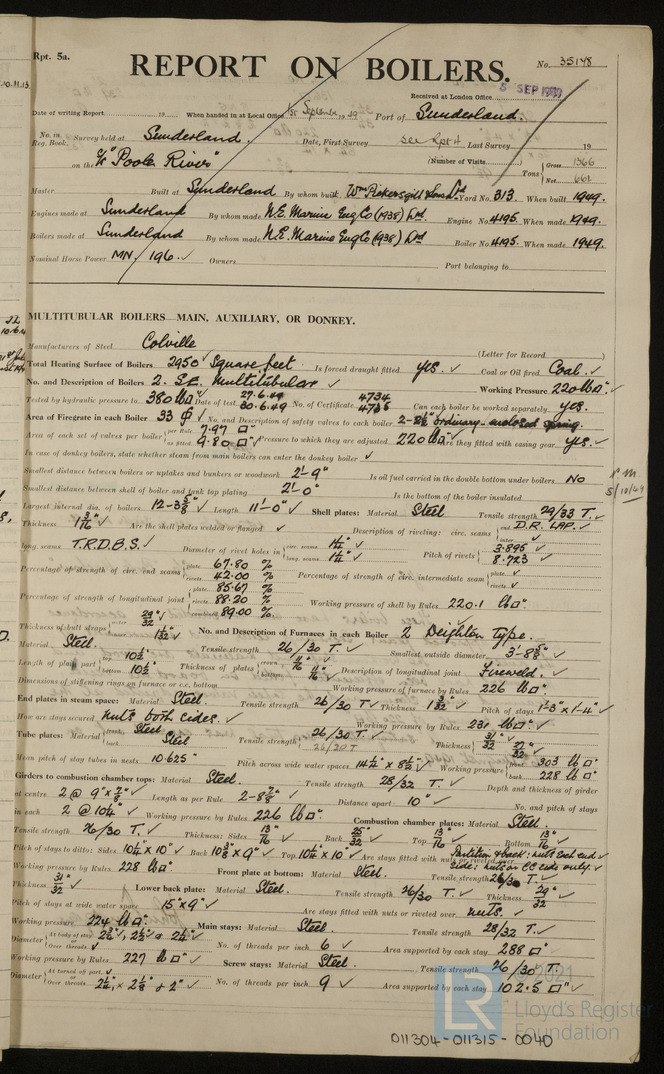 Rpt. 5a.
REPORT ON BOILERS.
No. 35148
Received at London Office 5 SEP 1949
Date of writing Report 19 When handed in at Local Office 1st September 19 49 Port of Sunderland.
No. in Reg. Book. Survey held at Sunderland. Date, First Survey see Rpt 4 Last Survey 19
on the "Poole River" (Number of Visits) Tons Gross 1366 Net 662
Master Built at Sunderland By whom built Wm Pickersgill & Sons Ltd Yard No. 313. When built 1949.
Engines made at Sunderland By whom made N.E. Marine Eng Co (1938) Ltd Engine No. 4195. When made 1949.
Boilers made at Sunderland By whom made N.E. Marine Eng Co (1938) Ltd Boiler No. 4195. When made 1949.
Nominal Horse Power MN / 196. ✓ Owners Port belonging to
MULTITUBULAR BOILERS MAIN, AUXILIARY, OR DONKEY.
Manufacturers of Steel Colville (Letter for Record)
Total Heating Surface of Boilers 2950 Square feet Is forced draught fitted yes. ✓ Coal or Oil fired Coal. ✓
No. and Description of Boilers 2. S.E. Multitubular ✓ Working Pressure 220 lb □" ✓
Tested by hydraulic pressure to 380 lb □" ✓ Date of test 27.6.49 30.6.49 No. of Certificate 4734 4735 Can each boiler be worked separately yes.
Area of Firegrate in each Boiler 33 ✓ No. and Description of safety valves to each boiler 2-2½" ordinary enclosed spring.
Area of each set of valves per boiler per Rule 7.97 □" as fitted 9.80 □" ✓ Pressure to which they are adjusted 220 lb □" ✓ Are they fitted with easing gear yes. ✓
In case of donkey boilers, state whether steam from main boilers can enter the donkey boiler ✓
Smallest distance between boilers or uptakes and bunkers or woodwork 2'-9" Is oil fuel carried in the double bottom under boilers No
Smallest distance between shell of boiler and tank top plating 2'-0" Is the bottom of the boiler insulated
Largest internal dia. of boilers 12'-3⅝" ✓ Length 11'-0" ✓ Shell plates: Material Steel Tensile strength 29/33 T. ✓
Thickness 1 3/16" ✓ Are the shell plates welded or flanged ✓ Description of riveting: circ. seams end D.R. LAP. ✓ inter. ✓
long. seams T.R.D.B.S. ✓ Diameter of rivet holes in circ. seams 1¼" ✓ long. seams 1¼" ✓ Pitch of rivets 3.895 ✓ 8.723 ✓
Percentage of strength of circ. end seams plate 67.80 % rivets 42.00 % Percentage of strength of circ. intermediate seam plate ✓ rivets ✓
Percentage of strength of longitudinal joint plate 85.67 % rivets 88.20 % combined 89.00 % Working pressure of shell by Rules 220.1 lb □"
Thickness of butt straps outer 29/32" ✓ inner 1 1/32" ✓ No. and Description of Furnaces in each Boiler 2 Deighton Type.
Material Steel. Tensile strength 26/30 T. ✓ Smallest outside diameter 3'-8⅝" ✓
Length of plain part top 10½" bottom 10½" ✓ Thickness of plates crown 9/16" bottom 9/16" ✓ Description of longitudinal joint Fireweld. ✓
Dimensions of stiffening rings on furnace or c.c. bottom ✓ Working pressure of furnace by Rules 226 lb □" ✓
End plates in steam space: Material Steel. ✓ Tensile strength 26/30 T ✓ Thickness 1 3/32" ✓ Pitch of stays 1'-3" x 1'-4" ✓
How are stays secured nuts both sides. ✓ Working pressure by Rules 231 lb □" ✓
Tube plates: Material front Steel back Steel Tensile strength 26/30 T. ✓ Thickness 31/32" 27/32" ✓
Mean pitch of stay tubes in nests 10.625" Pitch across wide water spaces 14½" x 8½" ✓ Working pressure front 303 lb □" back 228 lb □"
Girders to combustion chamber tops: Material Steel. Tensile strength 28/32 T. ✓ Depth and thickness of girder
at centre 2 @ 9" x ⅞" ✓ Length as per Rule 2'-8⅞" ✓ Distance apart 10" ✓ No. and pitch of stays
in each 2 @ 10¼" ✓ Working pressure by Rules 226 lb □" ✓ Combustion chamber plates: Material Steel.
Tensile strength 26/30 T. ✓ Thickness: Sides 13/16" Back 25/32" Top 13/16" ✓ Bottom 13/16" ✓
Pitch of stays to ditto: Sides 10¼" x 10" Back 10⅜" x 9" ✓ Top 10¼" x 10" ✓ Are stays fitted with nuts or riveted over Partition & back: nuts each end ✓ Side: nuts on CC side only. ✓
Working pressure by Rules 228 lb □". Front plate at bottom: Material Steel. Tensile strength 26/30 T. ✓
Thickness 31/32" ✓ Lower back plate: Material Steel. Tensile strength 26/30 T. ✓ Thickness 29/32" ✓
Pitch of stays at wide water space 15" x 9" ✓ Are stays fitted with nuts or riveted over nuts. ✓
Working pressure 224 lb □". ✓ Main stays: Material Steel. Tensile strength 28/32 T. ✓
Diameter At body of stay or Over threads No. of threads per inch 6 ✓ Area supported by each stay 288 □" ✓
Working pressure by Rules 227 lb □" ✓ Screw stays: Material Steel. Tensile strength 26/30 T.
Diameter At turned off part ✓ or Over threads 2¼", x 2⅛" & 2" ✓ No. of threads per inch 9 ✓ Area supported by each stay 102.5 □" ✓
5/10/49
© 2021
LR
Lloyd's Register
Foundation
011304-011315-0040